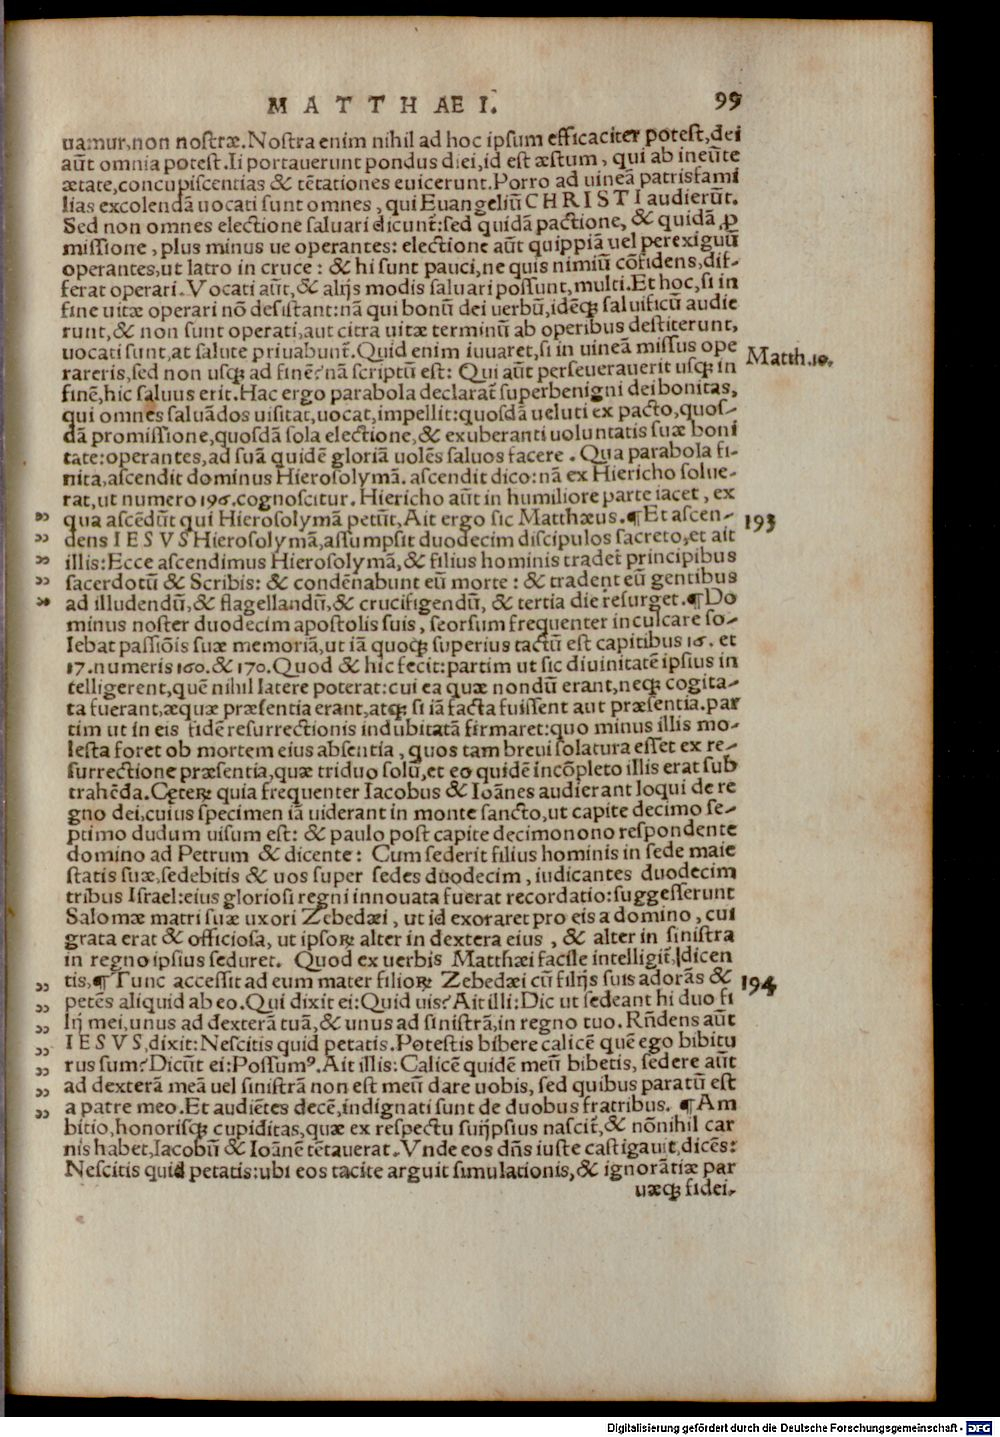 M A T T H AE I. 99
uamur,non nostræ.Nostra enim nihil ad hoc ipsum efficaciter potest,dei
aūt omnia potest.Ii portauerunt pondus diei,id est æstum, qui ab ineūte
ætate,concupiscentias & tētationes euicerunt.Porro ad uineā patrisfami
lias excolendā uocati sunt omnes, qui Euangeliū C H R I S T I audierūt.
Sed non omnes electione saluari dicunt̃:sed quidā pactione, & quidā ,ꝓ
missione, plus minus ue operantes: electione aūt quippiā uel perexiguū
operantes,ut latro in cruce: & hi sunt pauci,ne quis nimiū cōfidens,dif-
ferat operari.Vocati aūt,& alijs modis saluari possunt,multi.Et hoc,si in
fine uitæ operari nō desistant:nā qui bonū dei uerbū,idēqꝫ saluificū audie
runt,& non sunt operati,aut citra uitæ terminū ab operibus destiterunt,
uocati sunt,at salute priuabunt̃.Quid enim iuuaret,si in uineā missus ope
rareris,sed non usqꝫ ad finē?nā scriptū est: Qui aūt perseuerauerit usqꝫ in
Matth.10.
finē,hic saluus erit.Hac ergo parabola declarat̃ superbenigni dei bonitas,
qui omnes saluādos uisitat,uocat,impellit:quosdā ueluti ex pacto,quos-
dā promissione,quosdā sola electione,& exuberanti uoluntatis suæ boni
tate:operantes,ad suā quidē gloriā uolēs saluos facere. Qua parabola fi-
nita,ascendit dominus Hierosolymā. ascendit dico:nā ex Hiericho solue-
rat,ut numero 196.cognoscitur. Hiericho aūt in humiliore parte iacet, ex
qua ascēdūt qui Hierosolymā petūt,Ait ergo sic Matthæus.¶Et ascen-
193
dens I E S V S Hierosolymā,assumpsit duodecim discipulos sacreto,et ait
illis:Ecce ascendimus Hierosolymā,& filius hominis tradet̃ principibus
sacerdotū & Scribis: & condēnabunt eū morte: & tradent eū gentibus
ad illudendū,& flagellandū,& crucifigendū, & tertia die resurget.¶Do
minus noster duodecim apostolis suis, seorsum frequenter inculcare so-
lebat passiōis suæ memoriā,ut iā quoqꝫ superius tactū est capitibus 16. et
17.numeris 160.& 170.Quod & hic fecit:partim ut sic diuinitatē ipsius in
telligerent,quē nihil latere poterat:cui ea quæ nondū erant,neqꝫ cogita-
ta fuerant,æquæ præsentia erant,atqꝫ si iā facta fuissent aut præsentia.par
tim ut in eis fidē resurrectionis indubitatā firmaret:quo minus illis mo-
lesta foret ob mortem eius absentia, quos tam breui solatura esset ex re-
surrectione præsentia,quæ triduo solū,et eo quidē incōpleto illis erat sub
trahēda.Cęteꝝ quia frequenter Iacobus & Ioānes audierant loqui de re
gno dei,cuius specimen iā uiderant in monte sancto,ut capite decimo se-
ptimo dudum uisum est: & paulo post capite decimonono respondente
domino ad Petrum & dicente: Cum sederit filius hominis in sede maie
statis suæ,sedebitis & uos super sedes duodecim, iudicantes duodecim
tribus Israel:eius gloriosi regni innouata fuerat recordatio:suggesserunt
Salomæ matri suæ uxori Zebedæi, ut id exoraret pro eis a domino, cui
grata erat & officiosa, ut ipsoꝝ alter in dextera eius, & alter in sinistra
in regno ipsius seduret. Quod ex uerbis Matthæi facile intelligit̃,dicen
tis,¶Tunc accessit ad eum mater filioꝝ Zebedæi cū filijs suis adorās &
194
petēs aliquid ab eo.Qui dixit ei:Quid uis?Ait illi:Dic ut sedeant hi duo fi
lij mei,unus ad dexterā tuā,& unus ad sinistrā,in regno tuo.Rn̄dens aūt
I E S V S,dixit:Nescitis quid petatis.Potestis bibere calicē quē ego bibitu
rus sum?Dicūt ei:Possumꝰ.Ait illis:Calicē quidē meū bibetis, sedere aūt
ad dexterā meā uel sinistrā non est meū dare uobis, sed quibus paratū est
a patre meo.Et audiētes decē,indignati sunt de duobus fratribus. ¶Am
bitio,honorisqꝫ cupiditas,quæ ex respectu suijpsius nascit̃,& nōnihil car
nis habet,Iacobū & Ioānē tētauerat.Vnde eos dn̄s iuste castigauit,dicēs:
Nescitis quid petatis:ubi eos tacite arguit simulationis,& ignorātiæ par
uæqꝫ fidei.
Digitalisierung gefördert durch die Deutsche Forschungsgemeinschaft - DFG